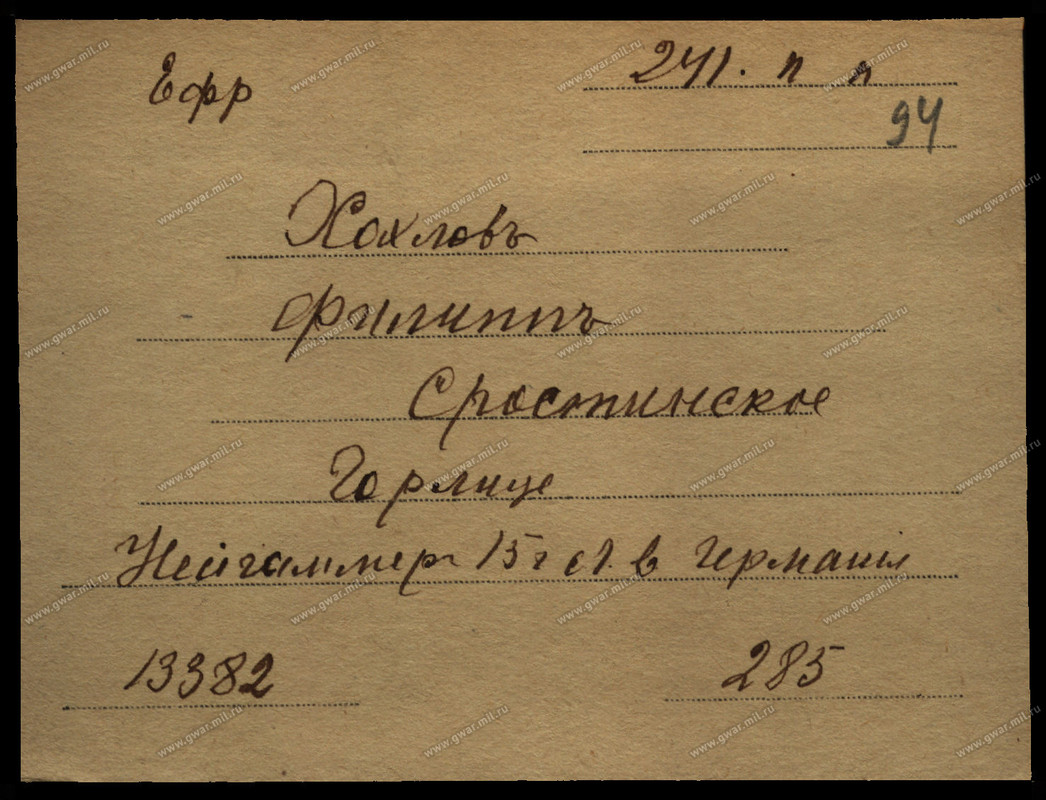 Ефр
241. п п
94
Хохловъ
Филиппъ
Сростинское
Горлице
Нейгаммеръ 15 г в Германiи
13382
285